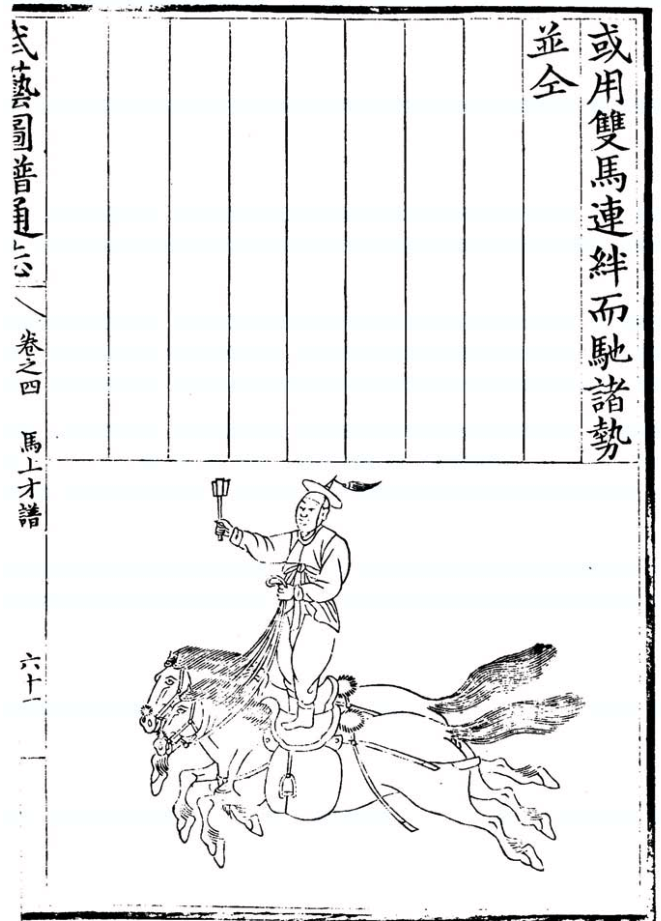 或用雙馬連絆而馳諸勢
並仝
武藝圖譜通志
卷之四 馬上才譜
六十一